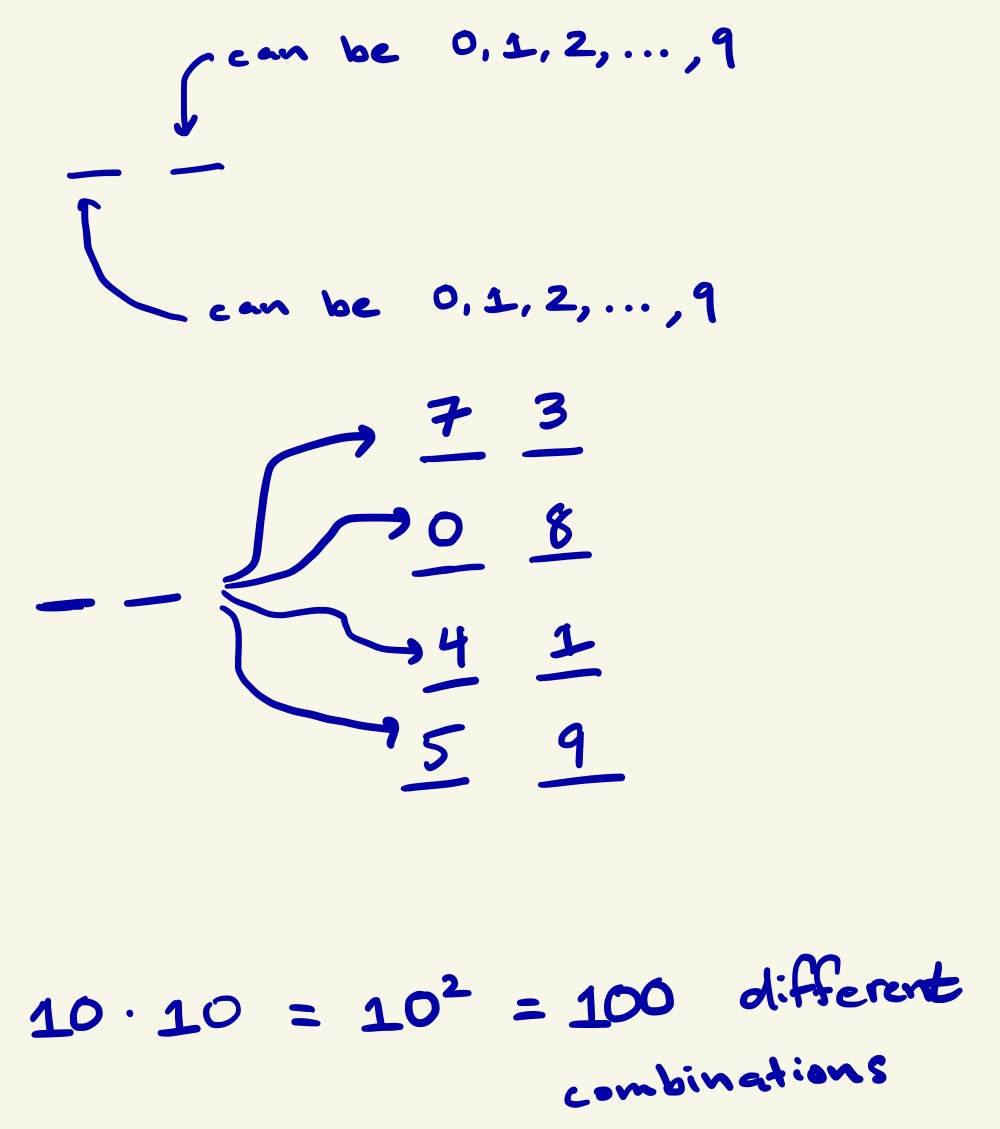 can be 0, 1, 2, ..., 9
can be 0, 1, 2, ..., 9
7 3
0 8
4 1
5 9
10 · 10 = 10² = 100 different
combinations